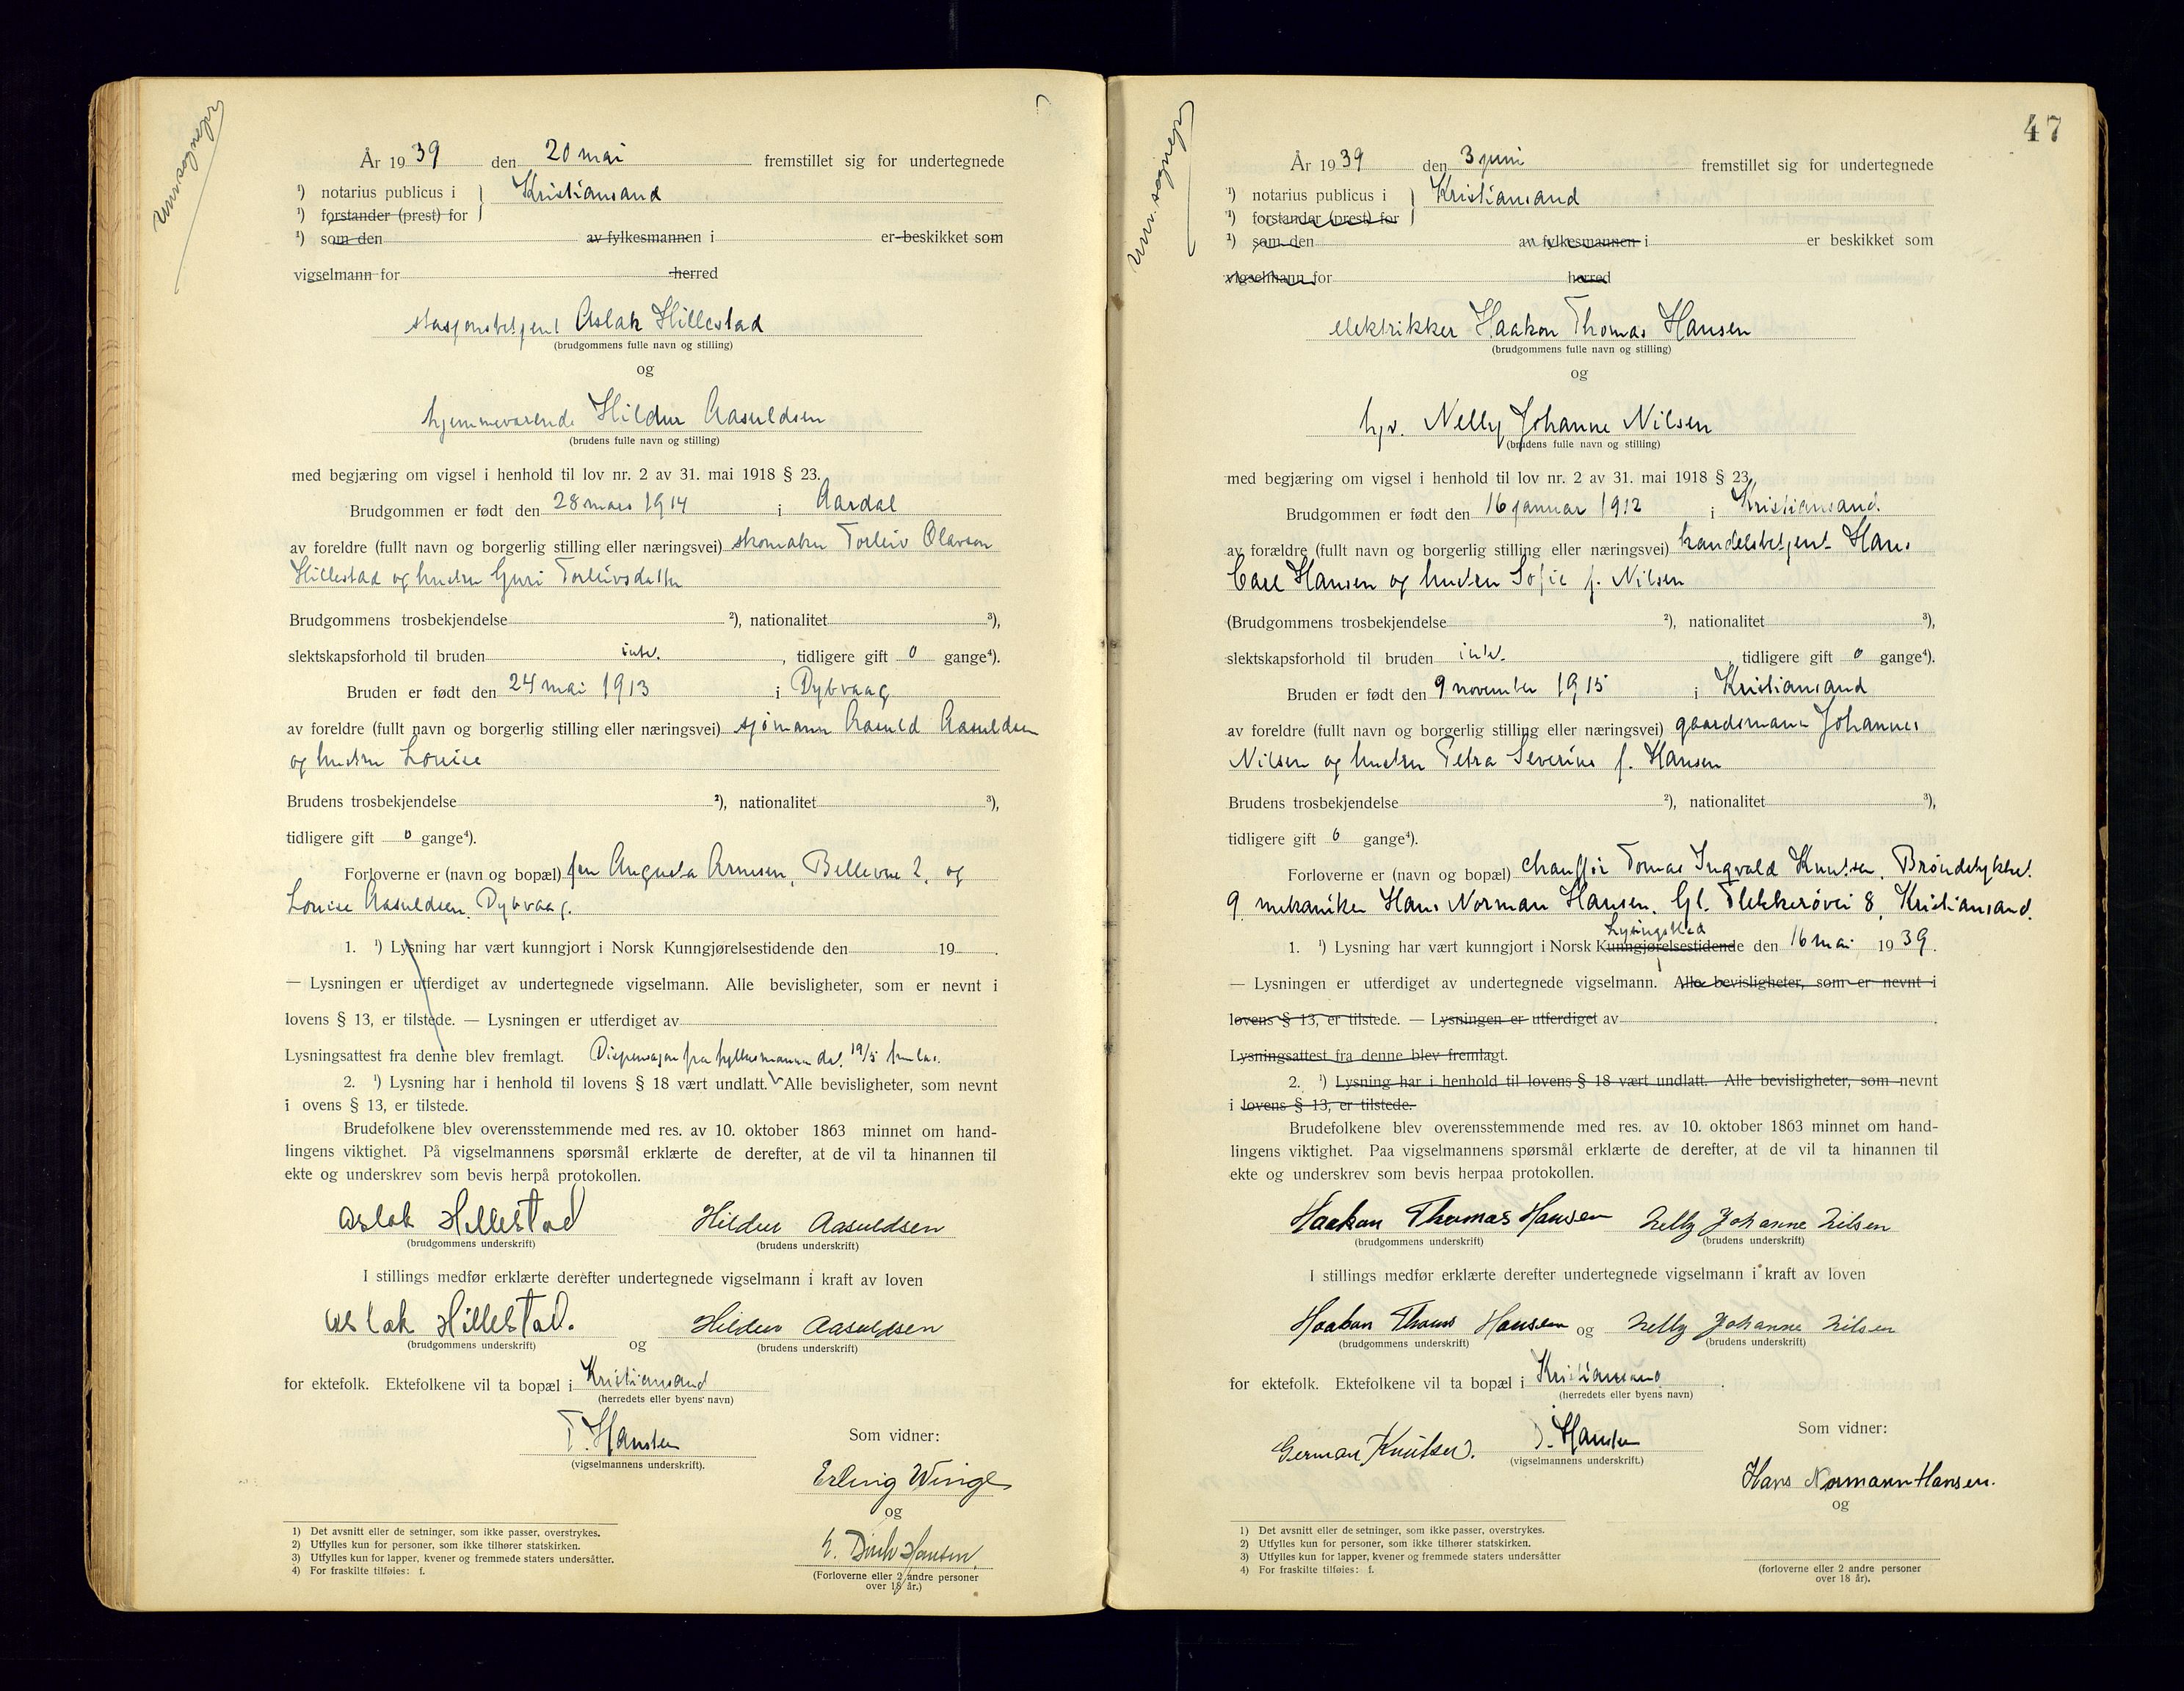 Unn. sognepr
År 1939 den 20 mai fremstillet sig for undertegnede
¹) notarius publicus i } Kristiansand
¹) forstander (prest) for
¹) som den av fylkesmannen i er beskikket som
vigselmann for herred
stasjonsbetjent Aslak Hillestad
(brudgommens fulle navn og stilling)
og
hjemmeværende Hildur Aasuldsen
(brudens fulle navn og stilling)
med begjæring om vigsel i henhold til lov nr. 2 av 31. mai 1918 § 23.
Brudgommen er født den 28 mars 1914 i Aardal
av foreldre (fullt navn og borgerlig stilling eller næringsvei) skomaker Torleiv Olavson
Hillestad og hustru Guri Torleivsdatter
Brudgommens trosbekjendelse ²), nationalitet ³),
slektskapsforhold til bruden intet. , tidligere gift 0 gange⁴).
Bruden er født den 24 mai 1913 i Dybvaag
av foreldre (fullt navn og borgerlig stilling eller næringsvei) sjømann Aasuld Aasuldsen
og hustru Louise
Brudens trosbekjendelse ²), nationalitet ³),
tidligere gift 0 gange⁴).
Forloverne er (navn og bopæl) fru Augusta Arnesen, Bellevue 2, og
Louise Aasuldsen, Dybvaag.
1. ¹) Lysning har vært kunngjort i Norsk Kunngjørelsestidende den 19 .
— Lysningen er utferdiget av undertegnede vigselmann. Alle bevisligheter, som er nevnt i
lovens § 13, er tilstede. — Lysningen er utferdiget av
Lysningsattest fra denne blev fremlagt. Dispensasjon fra fylkesmannen dat. 19/5
2. ¹) Lysning har i henhold til lovens § 18 vært undlatt. Alle bevisligheter, som nevnt
i ovens § 13, er tilstede.
Brudefolkene blev overensstemmende med res. av 10. oktober 1863 minnet om hand-
lingens viktighet. På vigselmannens spørsmål erklærte de derefter, at de vil ta hinannen til
ekte og underskrev som bevis herpå protokollen.
Aslak Hillestad Hildur Aasuldsen
(brudgommens underskrift) (brudens underskrift)
I stillings medfør erklærte derefter undertegnede vigselmann i kraft av loven
Aslak Hillestad. Hildur Aasuldsen
(brudgommens underskrift) og (brudens underskrift)
for ektefolk. Ektefolkene vil ta bopæl i Kristiansand
(herredets eller byens navn)
T. Hansten
(vigselmannens underskrift).
Som vidner:
Erling Winge
og
Hansen
(Forloverne eller 2 andre personer
over 18 år.)
1) Det avsnitt eller de setninger, som ikke passer, overstrykes.
2) Utfylles kun for personer, som ikke tilhører statskirken.
3) Utfylles kun for lapper, kvener og fremmede staters undersåtter.
4) For fraskilte tilføies: f.
47
Unn. sognepr
År 1939 den 3 juni fremstillet sig for undertegnede
¹) notarius publicus i } Kristiansand
¹) forstander (prest) for
¹) som den av fylkesmannen i er beskikket som
vigselmann for herred
elektrikker Haakon Thomas Hansen
(brudgommens fulle navn og stilling)
og
hjv. Nelly Johanne Nilsen
(brudens fulle navn og stilling)
med begjæring om vigsel i henhold til lov nr. 2 av 31. mai 1918 § 23.
Brudgommen er født den 16 januar 1912 i Kristiansand.
av forældre (fullt navn og borgerlig stilling eller næringsvei) handelsbetjent Hans
Carl Hansen og hustru Sofie f. Nilsen
(Brudgommens trosbekjendelse ²), nationalitet ³),
slektskapsforhold til bruden intet. tidligere gift 0 gange⁴).
Bruden er født den 9 november 1915 i Kristiansand
av foreldre (fullt navn og borgerlig stilling eller næringsvei) gaardsmann Johannes
Nilsen og hustru Petra Severine f. Hansen
Brudens trosbekjendelse ²), nationalitet ³),
tidligere gift 0 gange⁴).
Forloverne er (navn og bopæl) chauffør Tomas Ingvald Knutsen, Brøndstykket
9, mekaniker Hans Norman Hansen, Gl. Flekkerøvei 8, Kristiansand.
Lysingsblad
1. ¹) Lysning har vært kunngjort i Norsk Kunngjørelsestidende den 16 mai 1939.
— Lysningen er utferdiget av undertegnede vigselmann. Alle bevisligheter, som er nevnt i
lovens § 13, er tilstede. — Lysningen er utferdiget av .
Lysningsattest fra denne blev fremlagt.
2. ¹) Lysning har i henhold til lovens § 18 vært undlatt. Alle bevisligheter, som nevnt
i lovens § 13, er tilstede.
Brudefolkene blev overensstemmende med res. av 10. oktober 1863 minnet om hand-
lingens viktighet. Paa vigselmannens spørsmål erklærte de derefter, at de vil ta hinannen til
ekte og underskrev som bevis herpaa protokollen.
Haakon Thomas Hansen Nelly Johanne Nilsen
(brudgommens underskrift) (brudens underskrift)
I stillings medfør erklærte derefter undertegnede vigselmann i kraft av loven
Haakon Thomas Hansen og Nelly Johanne Nilsen
(brudgommens underskrift) (brudens underskrift)
for ektefolk. Ektefolkene vil ta bopæl i Kristiansand.
(herredets eller byens navn)
German Knutsen. T. Hansten
(vigselmannens underskrift.)
Som vidner:
Hans Normann Hansen.
og
(forloverne eller 2 andre personer
over 18 år).
1) Det avsnitt eller de setninger, som ikke passer, overstrykes.
2) Utfylles kun for personer, som ikke tilhører statskirken.
3) Utfylles kun for lapper, kvener og fremmede staters undersåtter
4) For fraskilte tilføies: f.